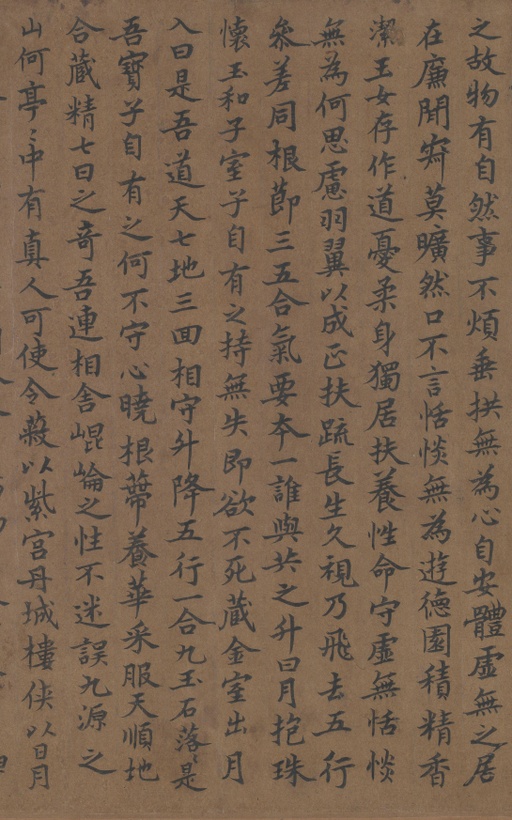 之故物有自然事不煩垂拱無為心自安體虛無之居
在廉閒㝛莫曠然口不言恬惔無為遊德園積精香
潔玉女存作道憂柔身獨居扶養性命守虛無恬惔
無為何思慮羽翼以成正扶踈長生久視乃飛去五行
叅差同根莭三五合氣要夲一誰與共之升日月抱珠
懷玉和子室子自有之持無失即欲不死藏金室出月
入日是吾道天七地三回相守升降五行一合九玉石落〻是
吾寶子自有之何不守心曉根蔕養華采服天順地
合藏精七日之奇吾連相舍崐崘之性不迷誤九源之
山何亭〻中有真人可使令蔽以紫宫丹城樓俠以日月